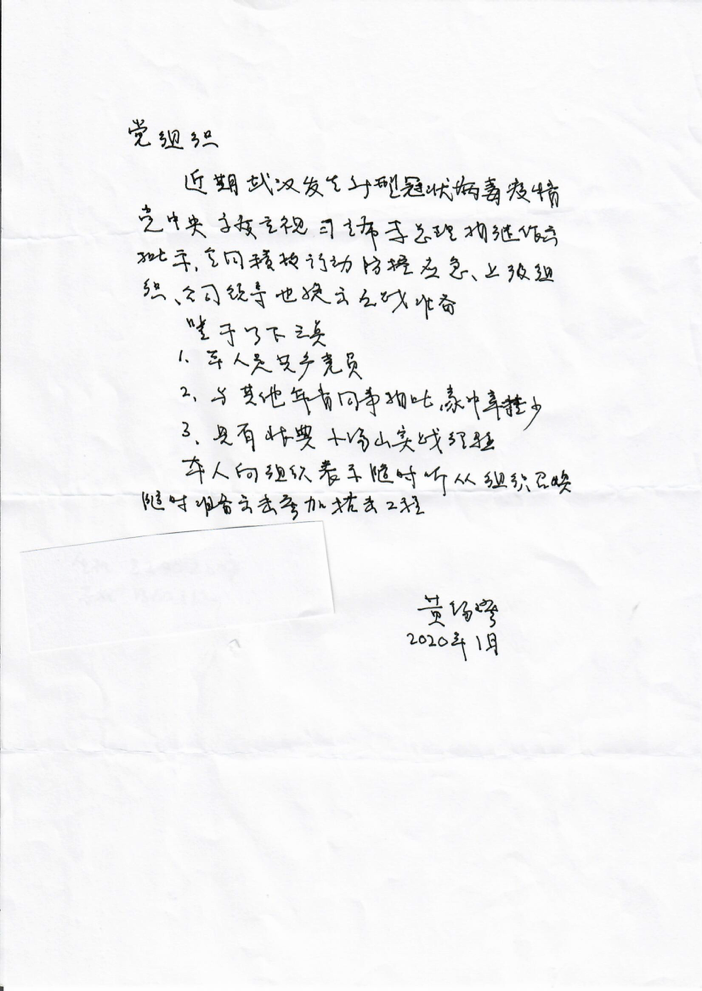 党组织
近期武汉发生新型冠状病毒疫情
党中央高度重视习主席李总理相继作出
批示,全国积极行动防控应急、上级组
织、公司领导也接立应战准备
鉴于以下三点
1. 本人是共产党员
2. 与其他年青同事相比,家中牵挂少
3. 具有 小汤山实战经验
本人向组织表示随时听从组织召唤
随时准备立去参加抗击工程
黄
2020年1月